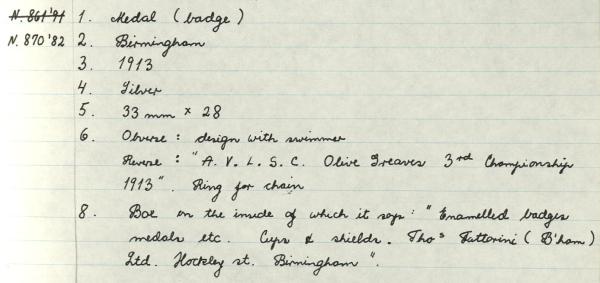 N. 861'91 1. Medal (badge)
N. 870'82 2. Birmingham
3. 1913
4. Silver
5. 33 mm × 28
6. Obverse : design with swimmer
Reverse : "A. V. L. S. C. Olive Greaves 3rd Championship
1913". Ring for chain
8. Box on the inside of which it says : "Enamelled badges
medals etc. Cups & shields. Thos Fattorini (B'ham)
Ltd. Hockley st. Birmingham".